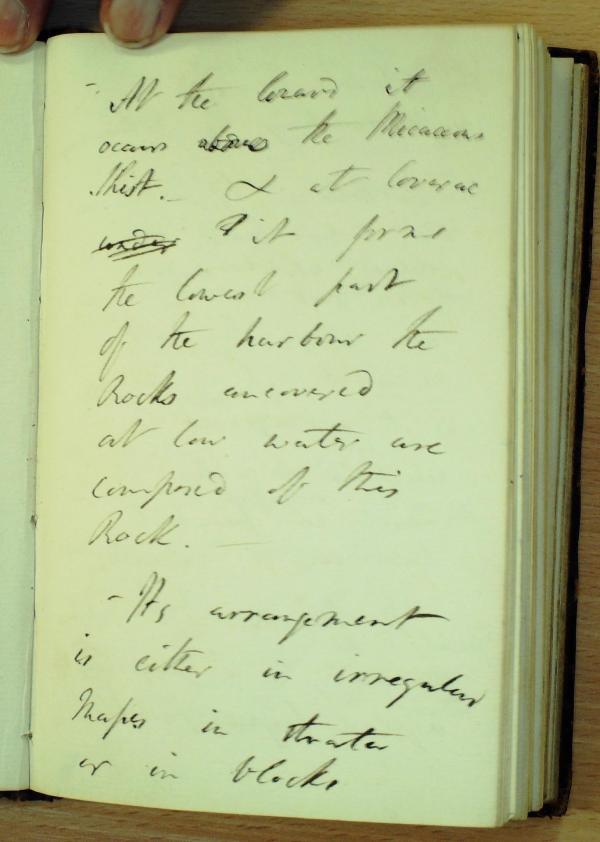 - At the Lizard it
occurs above the Micaceous
Shist. - & at Coverac
under it forms
the lowest part
of the harbour the
Rocks uncovered
at low water are
composed of this
Rock. -
- Its arrangement
is either in irregular
shapes in strata
or in blocks